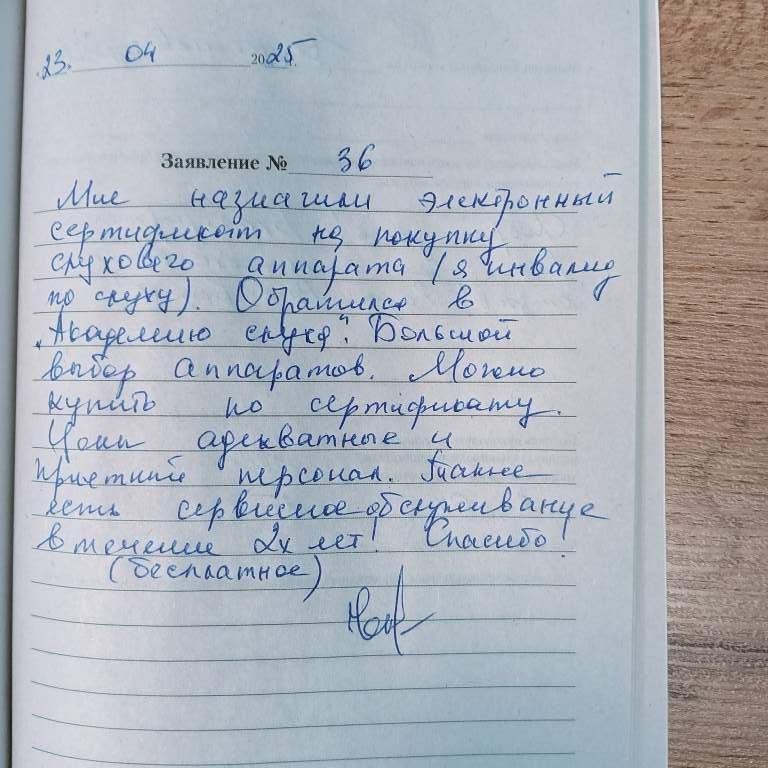 23. 04 2025
Заявление № 36
Мне назначили электронный
сертификат на покупку
слухового аппарата (я инвалид
по слуху). Обратился в
"Академию слуха". Большой
выбор аппаратов. Можно
купить по сертификату.
Цены адекватные и
приятный персонал. Также
есть сервисное обслуживание
в течение 2х лет! Спасибо!
(бесплатное)